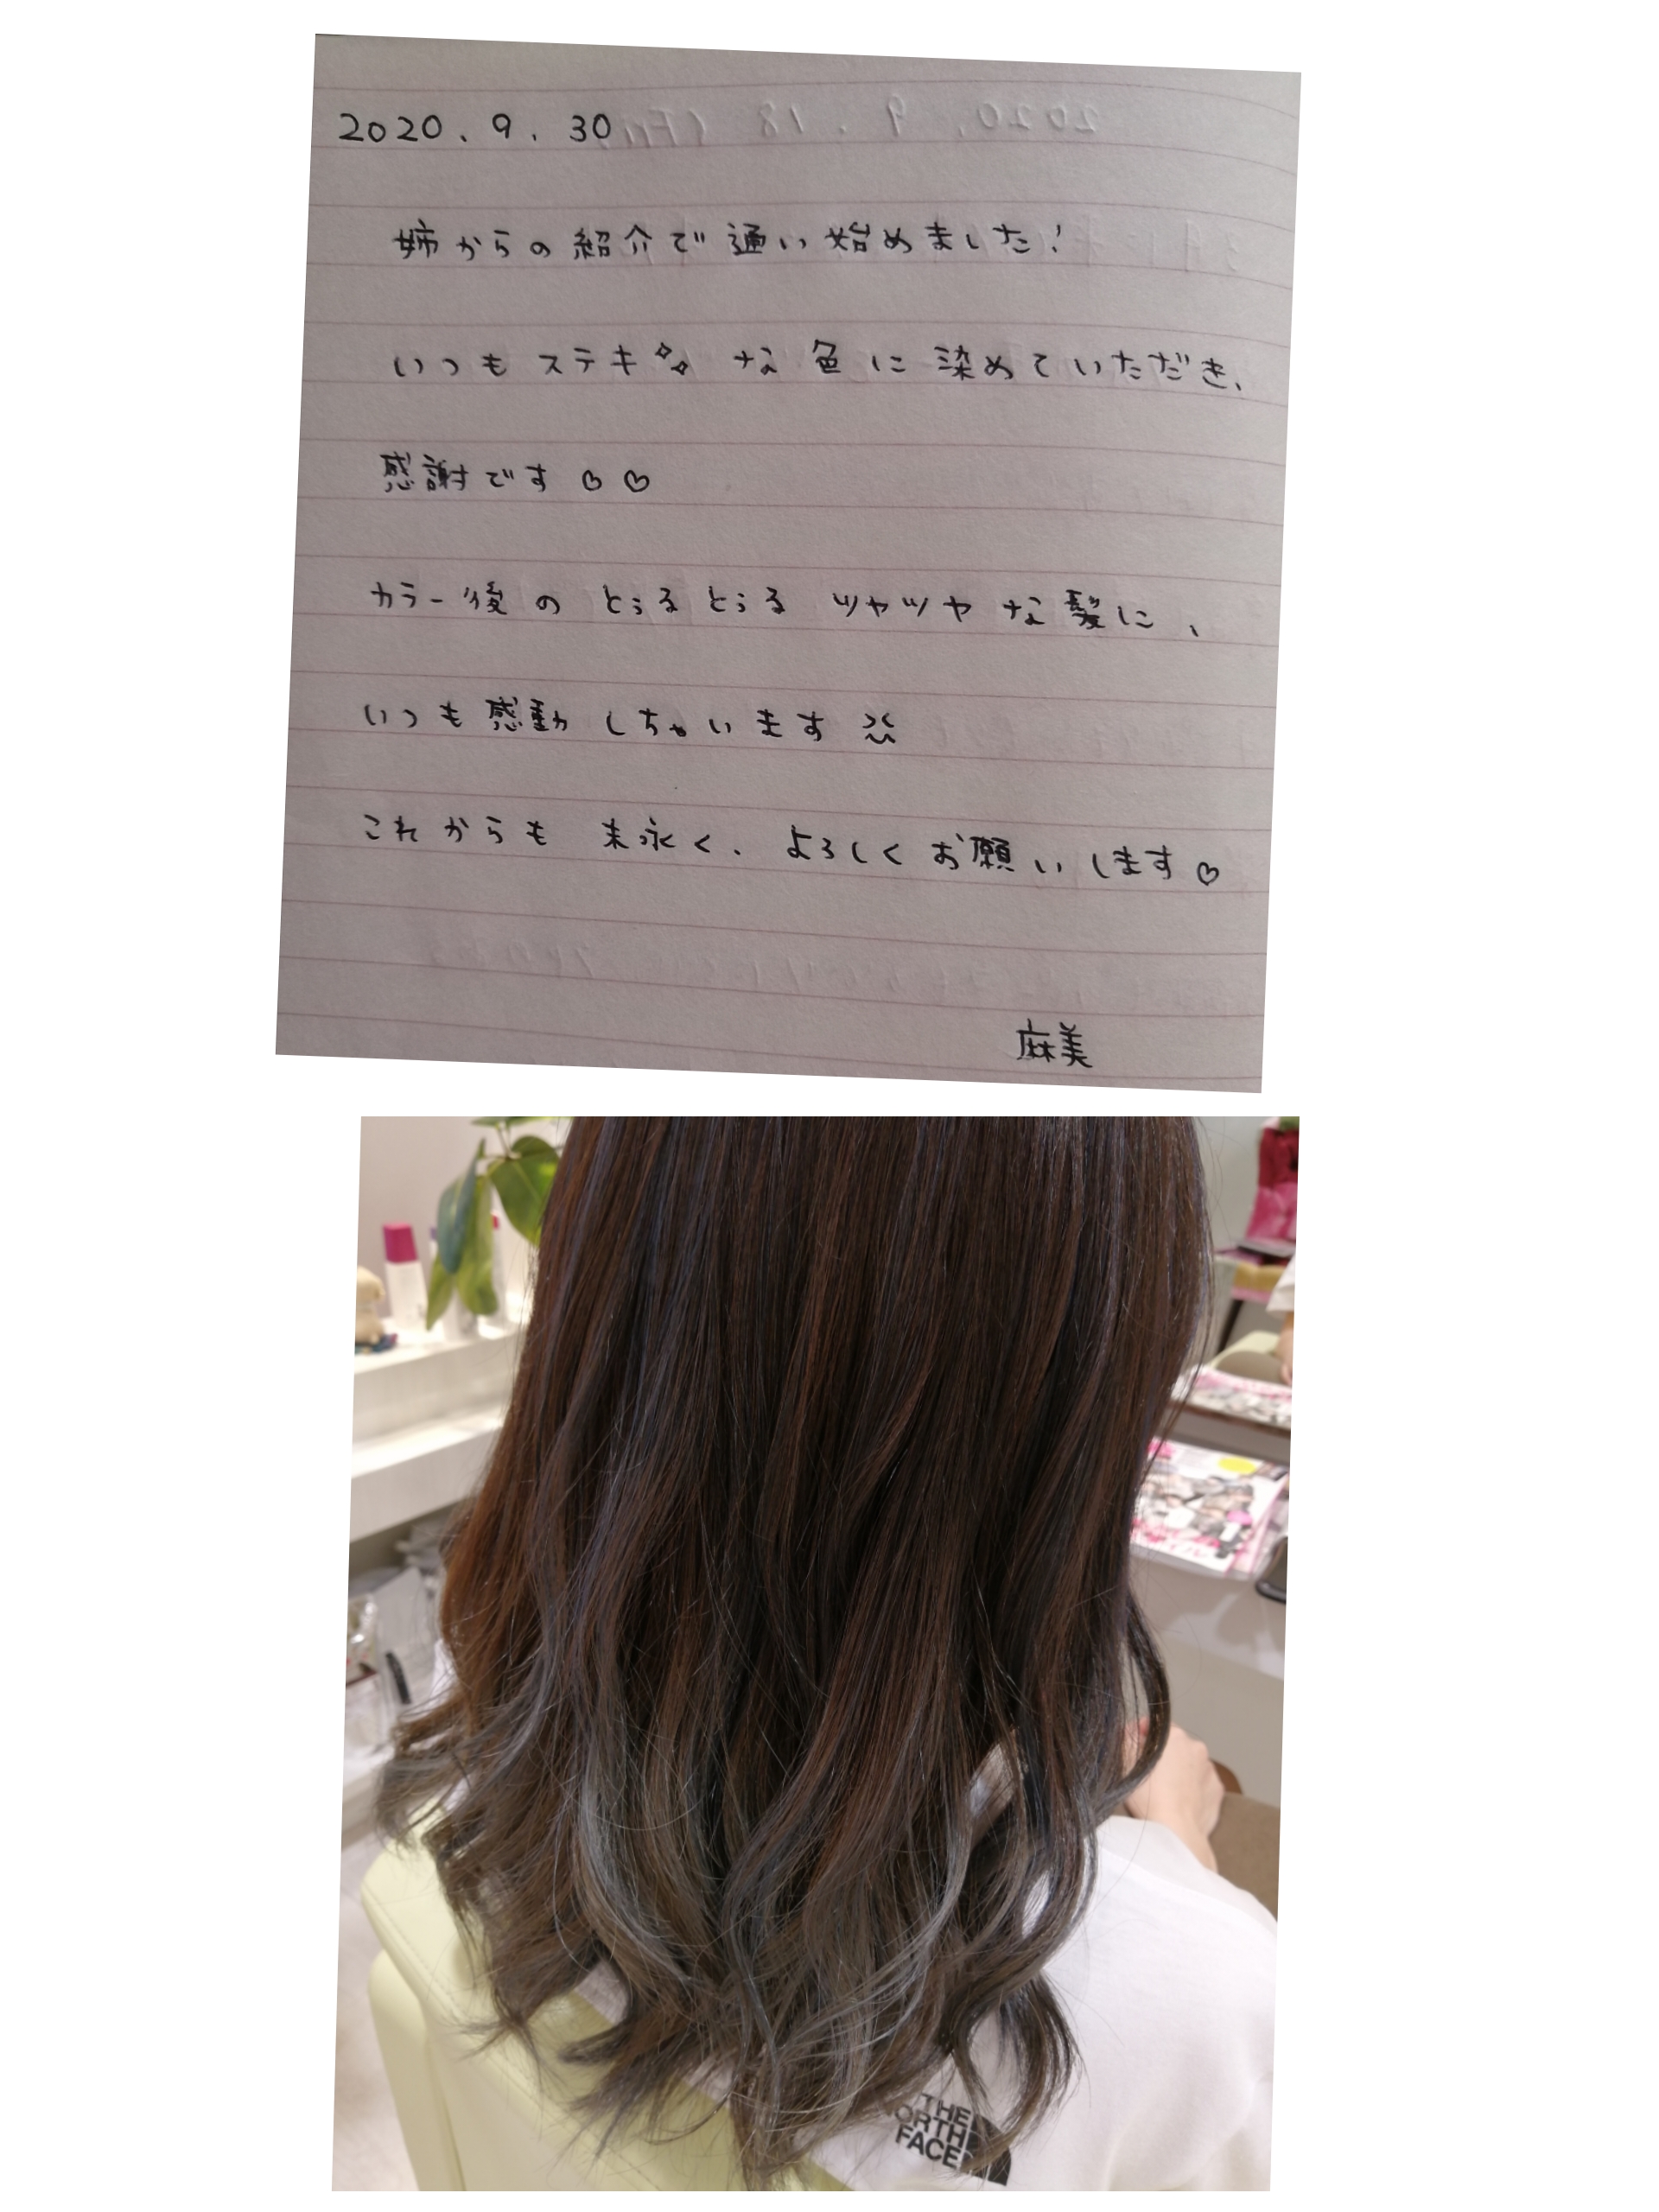 2020.9.30
姉からの紹介で通い始めました!
いつもステキな色に染めていただき、
感謝です♡♡
カラー後のとぅるとぅるツヤツヤな髪に、
いつも感動しちゃいます
これからも末永く、よろしくお願いします♡
麻美
THE
NORTH
FACE